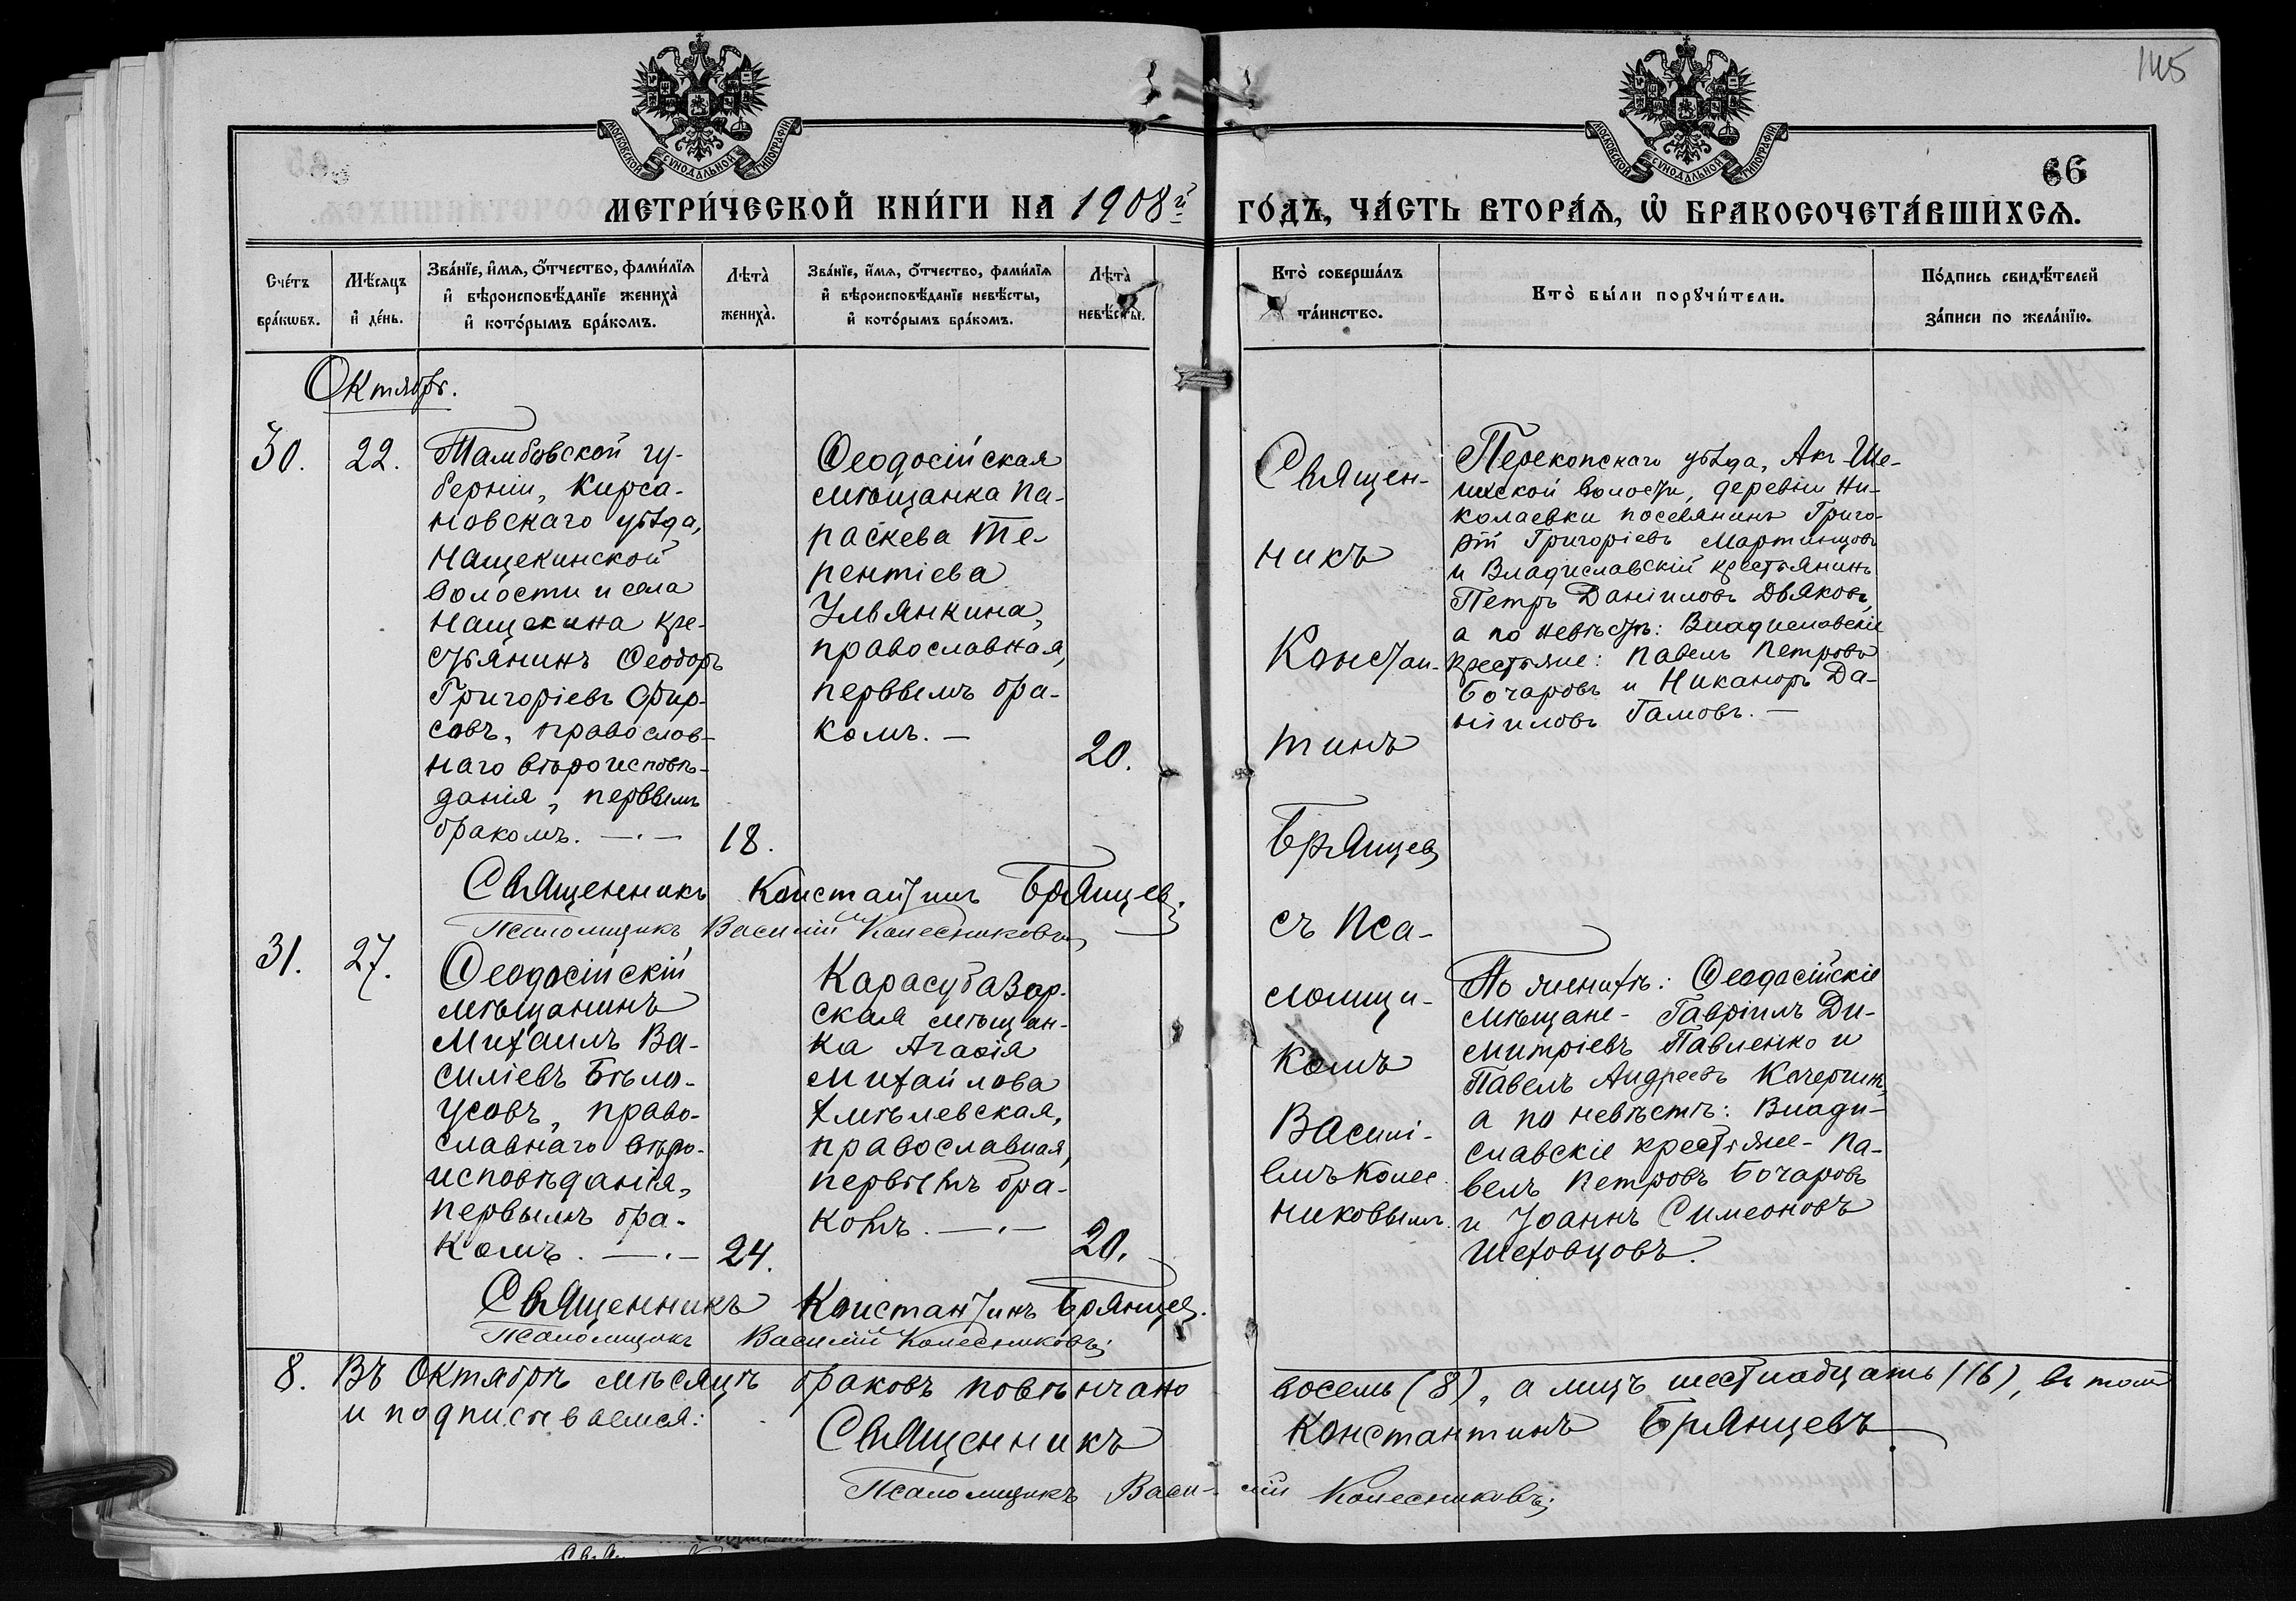 145
МОСКОВСКОЙ СѴНОДАЛЬНОЙ ТИПОГРАФІИ
МОСКОВСКОЙ СѴНОДАЛЬНОЙ ТИПОГРАФІИ
66
МЕТРИ́ЧЕСКОЙ КНИ́ГИ НА 1908й ГО́ДЪ, ЧА́СТЬ ВТОРА́Ѧ, Ѡ҆ БРАКОСОЧЕТА́ВШИХСѦ.
Сче́тъ
бра́кωвъ.
Мѣ́сѧцъ
и҆ де́нь.
Зва́нїе, и҆́мѧ, ѻ҆́тчество, фами́лїѧ
и҆ вѣроисповѣ́данїе жениха̀
и҆ кото́рымъ бра́комъ.
Лѣта̀
жениха̀.
Зва́нїе, и҆́мѧ, ѻ҆́тчество, фами́лїѧ
и҆ вѣроисповѣ́данїе невѣ́сты,
и҆ кото́рымъ бра́комъ.
Лѣта̀
невѣ́сты.
Кто̀ соверша́лъ
та́инство.
Кто̀ бы́ли порꙋчи́тели.
По́дпись свидѣ́телей
за́писи по жела́нїю.
Октябрь.
30.
22.
Тамбовской гу-
берніи, Кирса-
новскаго уѣзда,
Нащекинской
волости и села
Нащекина кре-
стьянинъ Ѳеодоръ
Григоріевъ Фир-
совъ, православ-
наго вѣроисповѣ-
данія, первымъ
бракомъ. —.—
18.
Ѳеодосійская
мѣщанка Па-
раскева Те-
рентіева
Ульянкина,
православная,
первымъ бра-
комъ. —
20.
Священ-
никъ
Констан-
тинъ
Брянцевъ
съ Пса-
ломщи-
комъ
Василі-
емъ Колес-
никовымъ.
Перекопскаго уѣзда, Акъ-Ше-
ихской волости, деревни Ни-
колаевки поселянинъ Григо-
рій Григоріевъ Мартинцовъ
и Владиславскій крестьянинъ
Петръ Даніиловъ Дьяковъ,
а по невѣстѣ: Владиславскіе
крестьяне: Павелъ Петровъ
Бочаровъ и Никаноръ Да-
ніиловъ Гамовъ. —
Священникъ Константинъ Брянцевъ.
Псаломщикъ Василій Колесниковъ
31.
27.
Ѳеодосійскій
мѣщанинъ
Михаилъ Ва-
силіевъ Бѣло-
усовъ, право-
славнаго вѣро-
исповѣданія,
первымъ бра-
комъ. —.—
24.
Карасубазар-
ская мѣщан-
ка Агаѳія
Михайлова
Хмѣлевская,
православная,
первымъ бра-
комъ. —.—
20.
По женихѣ: Ѳеодосійскіе
мѣщане - Гавріилъ Ди-
митріевъ Павленко и
Павелъ Андреевъ Кочергинъ,
а по невѣстѣ: Влади-
славскіе крестьяне - Па-
велъ Петровъ Бочаровъ
и Іоаннъ Симеоновъ
Шеховцовъ.
Священникъ Константинъ Брянцевъ.
Псаломщикъ Василій Колесниковъ;
8. Въ Октябрѣ мѣсяцѣ браковъ повѣнчано восемь (8), а лицъ шестнадцать (16), въ томъ
и подписываемся:
Священникъ Константинъ Брянцевъ
Псаломщикъ Василій Колесниковъ;